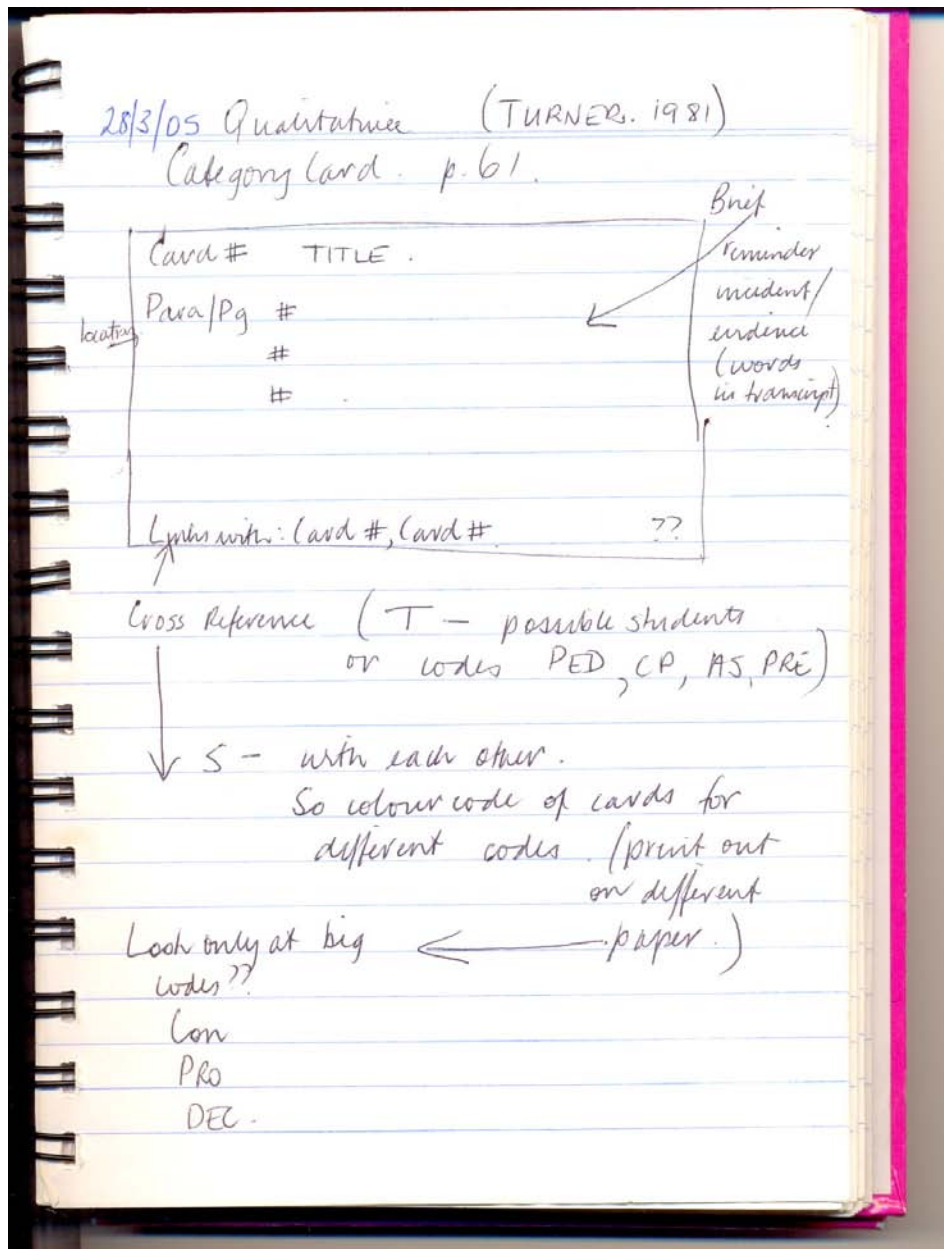 28/3/05 Qualitative (TURNER. 1981)
Category Card. p. 61.
Brief
reminder
incident/
evidence
(words
in transcript)
Card # TITLE.
location
Para/Pg #
#
#
Links with: Card #, Card # ??
Cross Reference (T - possible students
or codes PED, CP, AS, PRE)
S - with each other.
So colour code of cards for
different codes. (print out
on different
paper.)
Look only at big
codes??
Con
PRO
DEC.